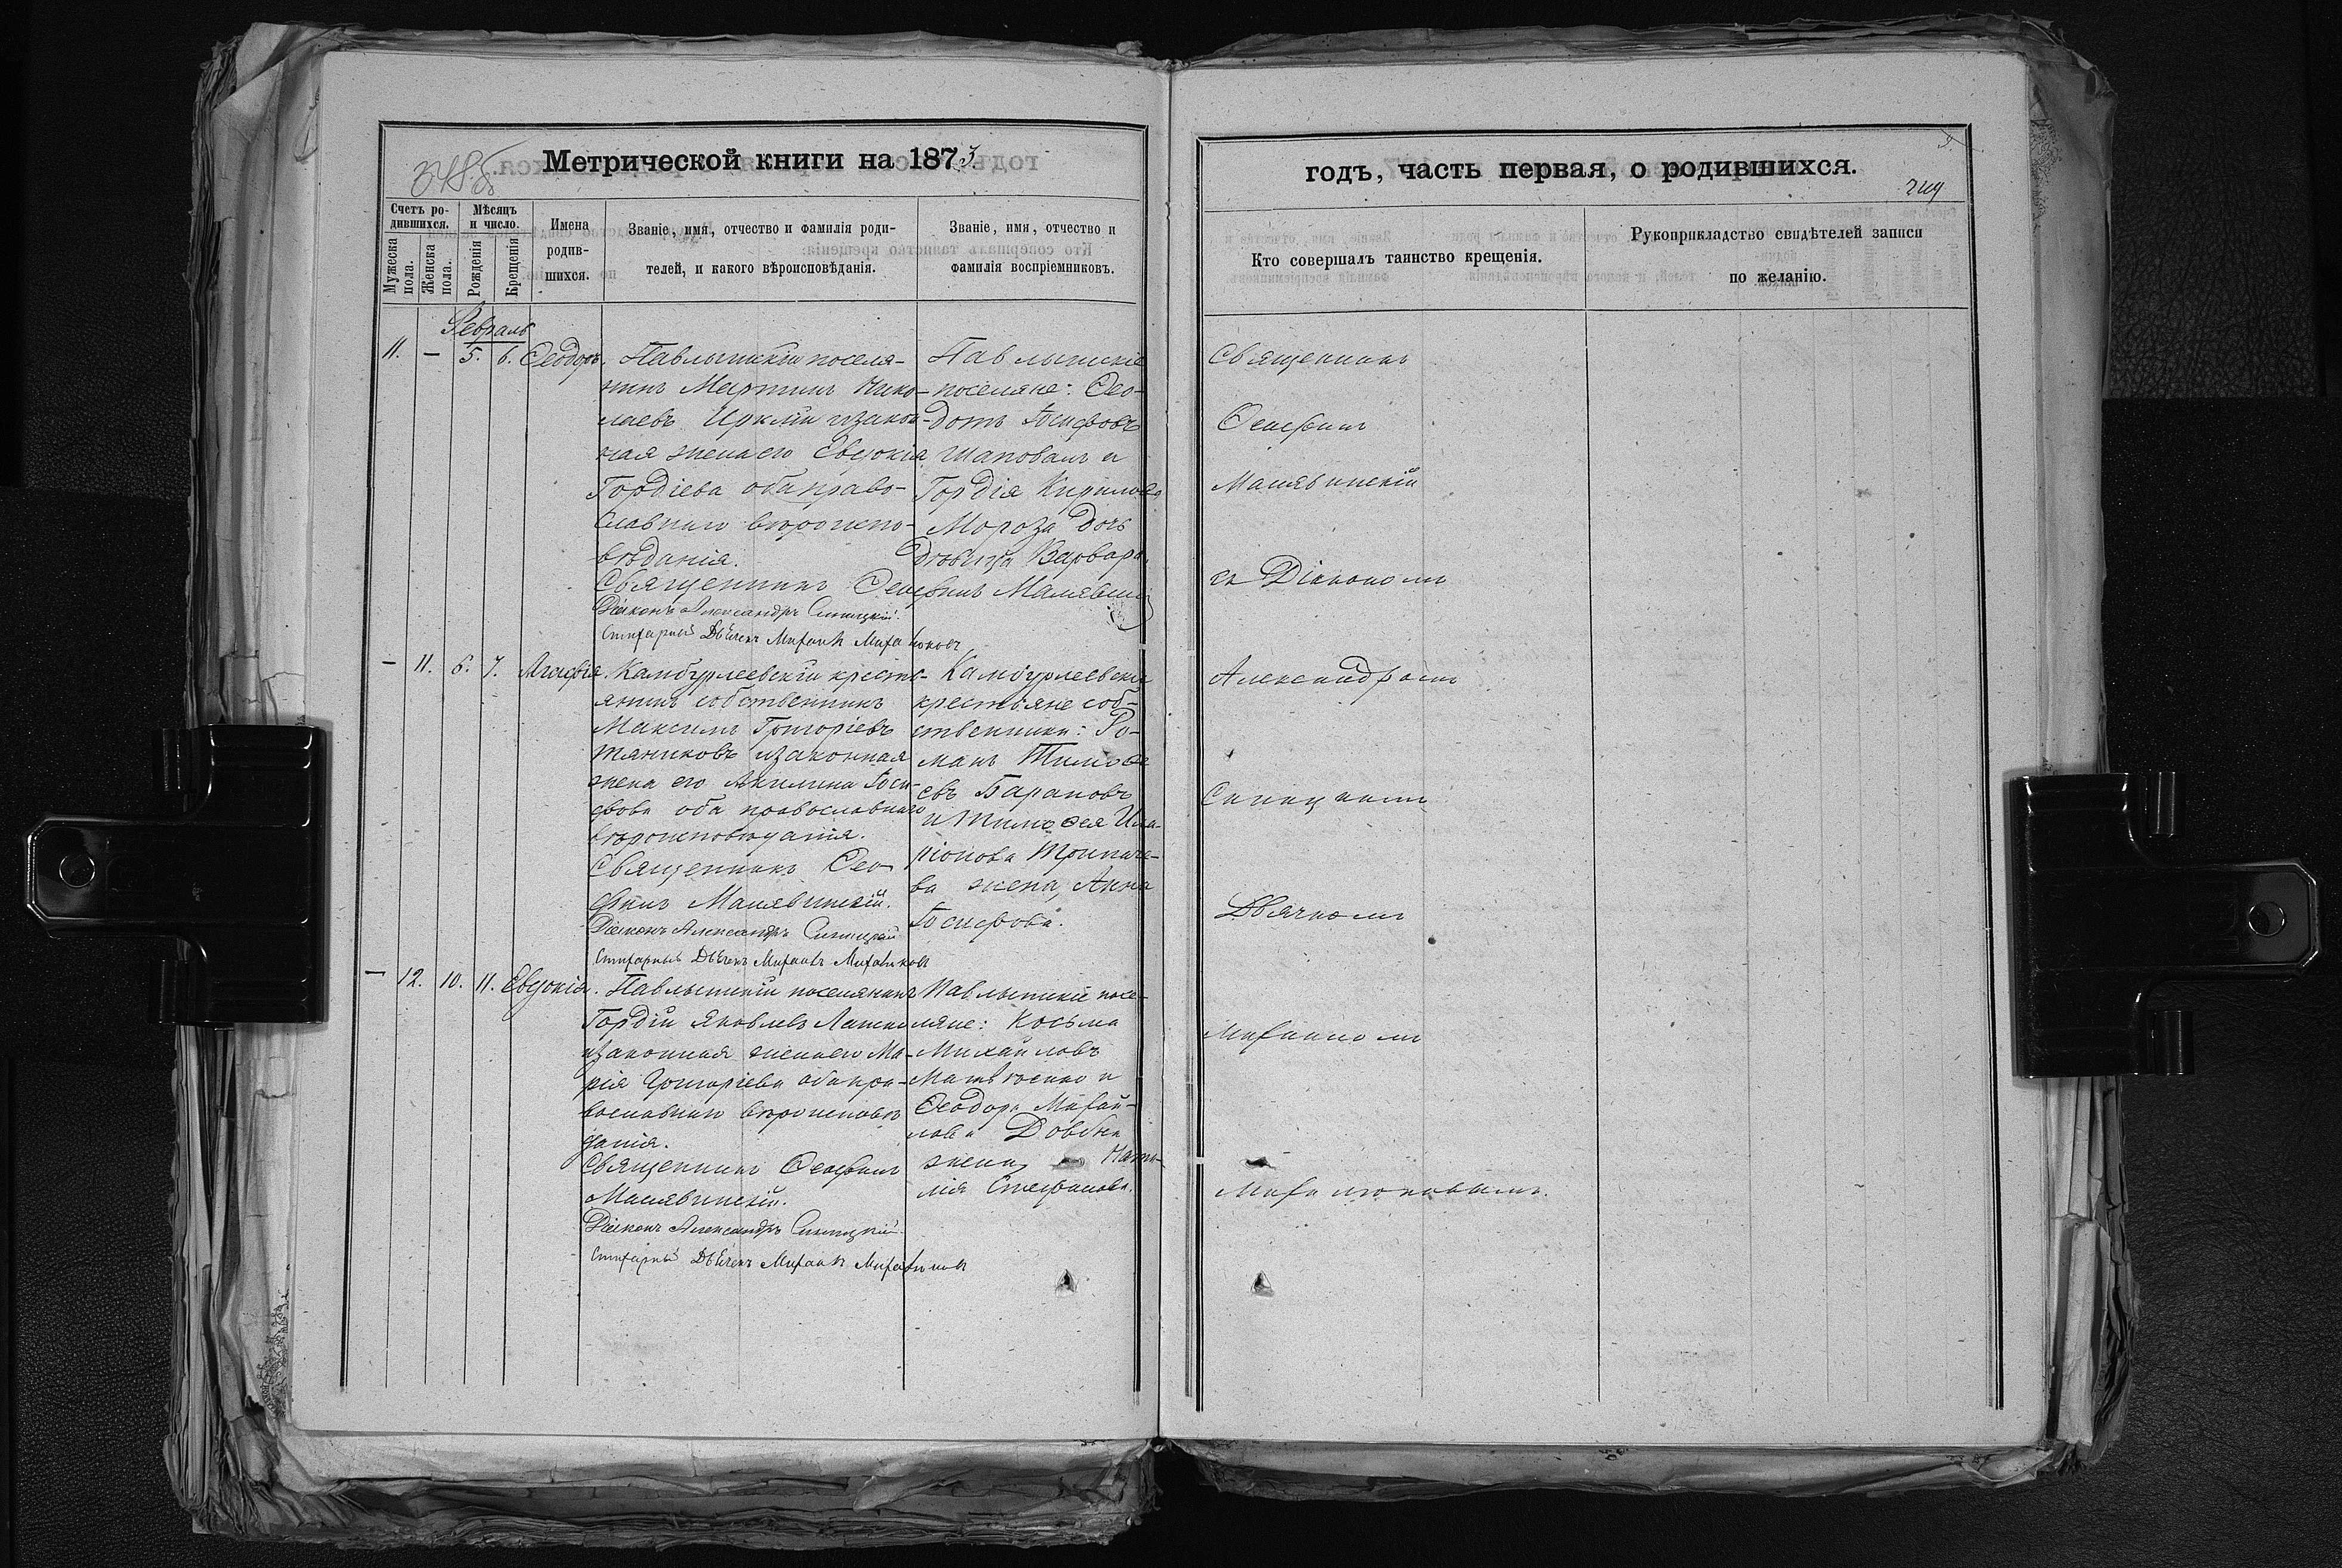 Метрической книги на 1873
Счетъ ро-
дившихся.
Мѣсяцъ
и число.
Мужеска
пола.
Женска
пола.
Рожденія
Крещенія
Имена
родив-
шихся.
Званіе, имя, отчество и фамилія роди-
телей, и какого вѣроисповѣданія.
Званіе, имя, отчество и
фамилія воспріемниковъ.
Февраль
11. — 5. 6. Ѳеодоръ.
Павлышскій поселя-
нинъ Мартинъ Нико-
лаевъ и закон-
ная жена его Евдокія
Гордіева оба право-
славнаго вѣроиспо-
вѣданія.
Священникъ Ѳеофилъ Малявинскій
Діаконъ Александръ Синицкій.
Стихарный Дьячекъ Михаилъ
Павлышскіе
поселяне: Ѳео-
дотъ Іосифовъ
Шаповалъ и
Гордія Кирилова
Мороза дочь
дѣвица Варвара.
— 11. 6. 7. Агафія.
Камбурлеевскій кресть-
янинъ собственникъ
Максимъ Григоріевъ
и законная
жена его Акилина Іоси-
фова оба православнаго
вѣроисповѣданія.
Священникъ Ѳео-
филъ Малявинскій.
Діаконъ Александръ Синицкій
Стихарный Дьячекъ Михаилъ
Камбурлеевскіе
крестьяне соб-
ственники: Ро-
манъ Тимоѳе
евъ Барановъ
и Тимоѳея Ила-
ріонова
ва жена, Анна
Іосифова.
— 12. 10. 11. Евдокія.
Павлышскій поселянинъ
Гордій Яковлевъ
и законная жена его Ма-
рія Григоріева оба пра-
вославнаго вѣроисповѣ
данія.
Священникъ Ѳеофилъ
Малявинскій.
Діаконъ Александръ Синицкій.
Стихарный Дьячекъ Михаилъ
Павлышскіе посе-
ляне: Косьма
Михайловъ
Матвѣенко и
Ѳеодора Михай-
лова Довбни
жена Ната-
лія Стефанова.
годъ, часть первая, о родившихся.
Кто совершалъ таинство крещенія.
Рукоприкладство свидѣтелей записи
по желанію.
Священникъ
Ѳеофилъ
Малявинскій
съ Діакономъ
Александромъ
Синицкимъ
Дьячкомъ
Михаиломъ